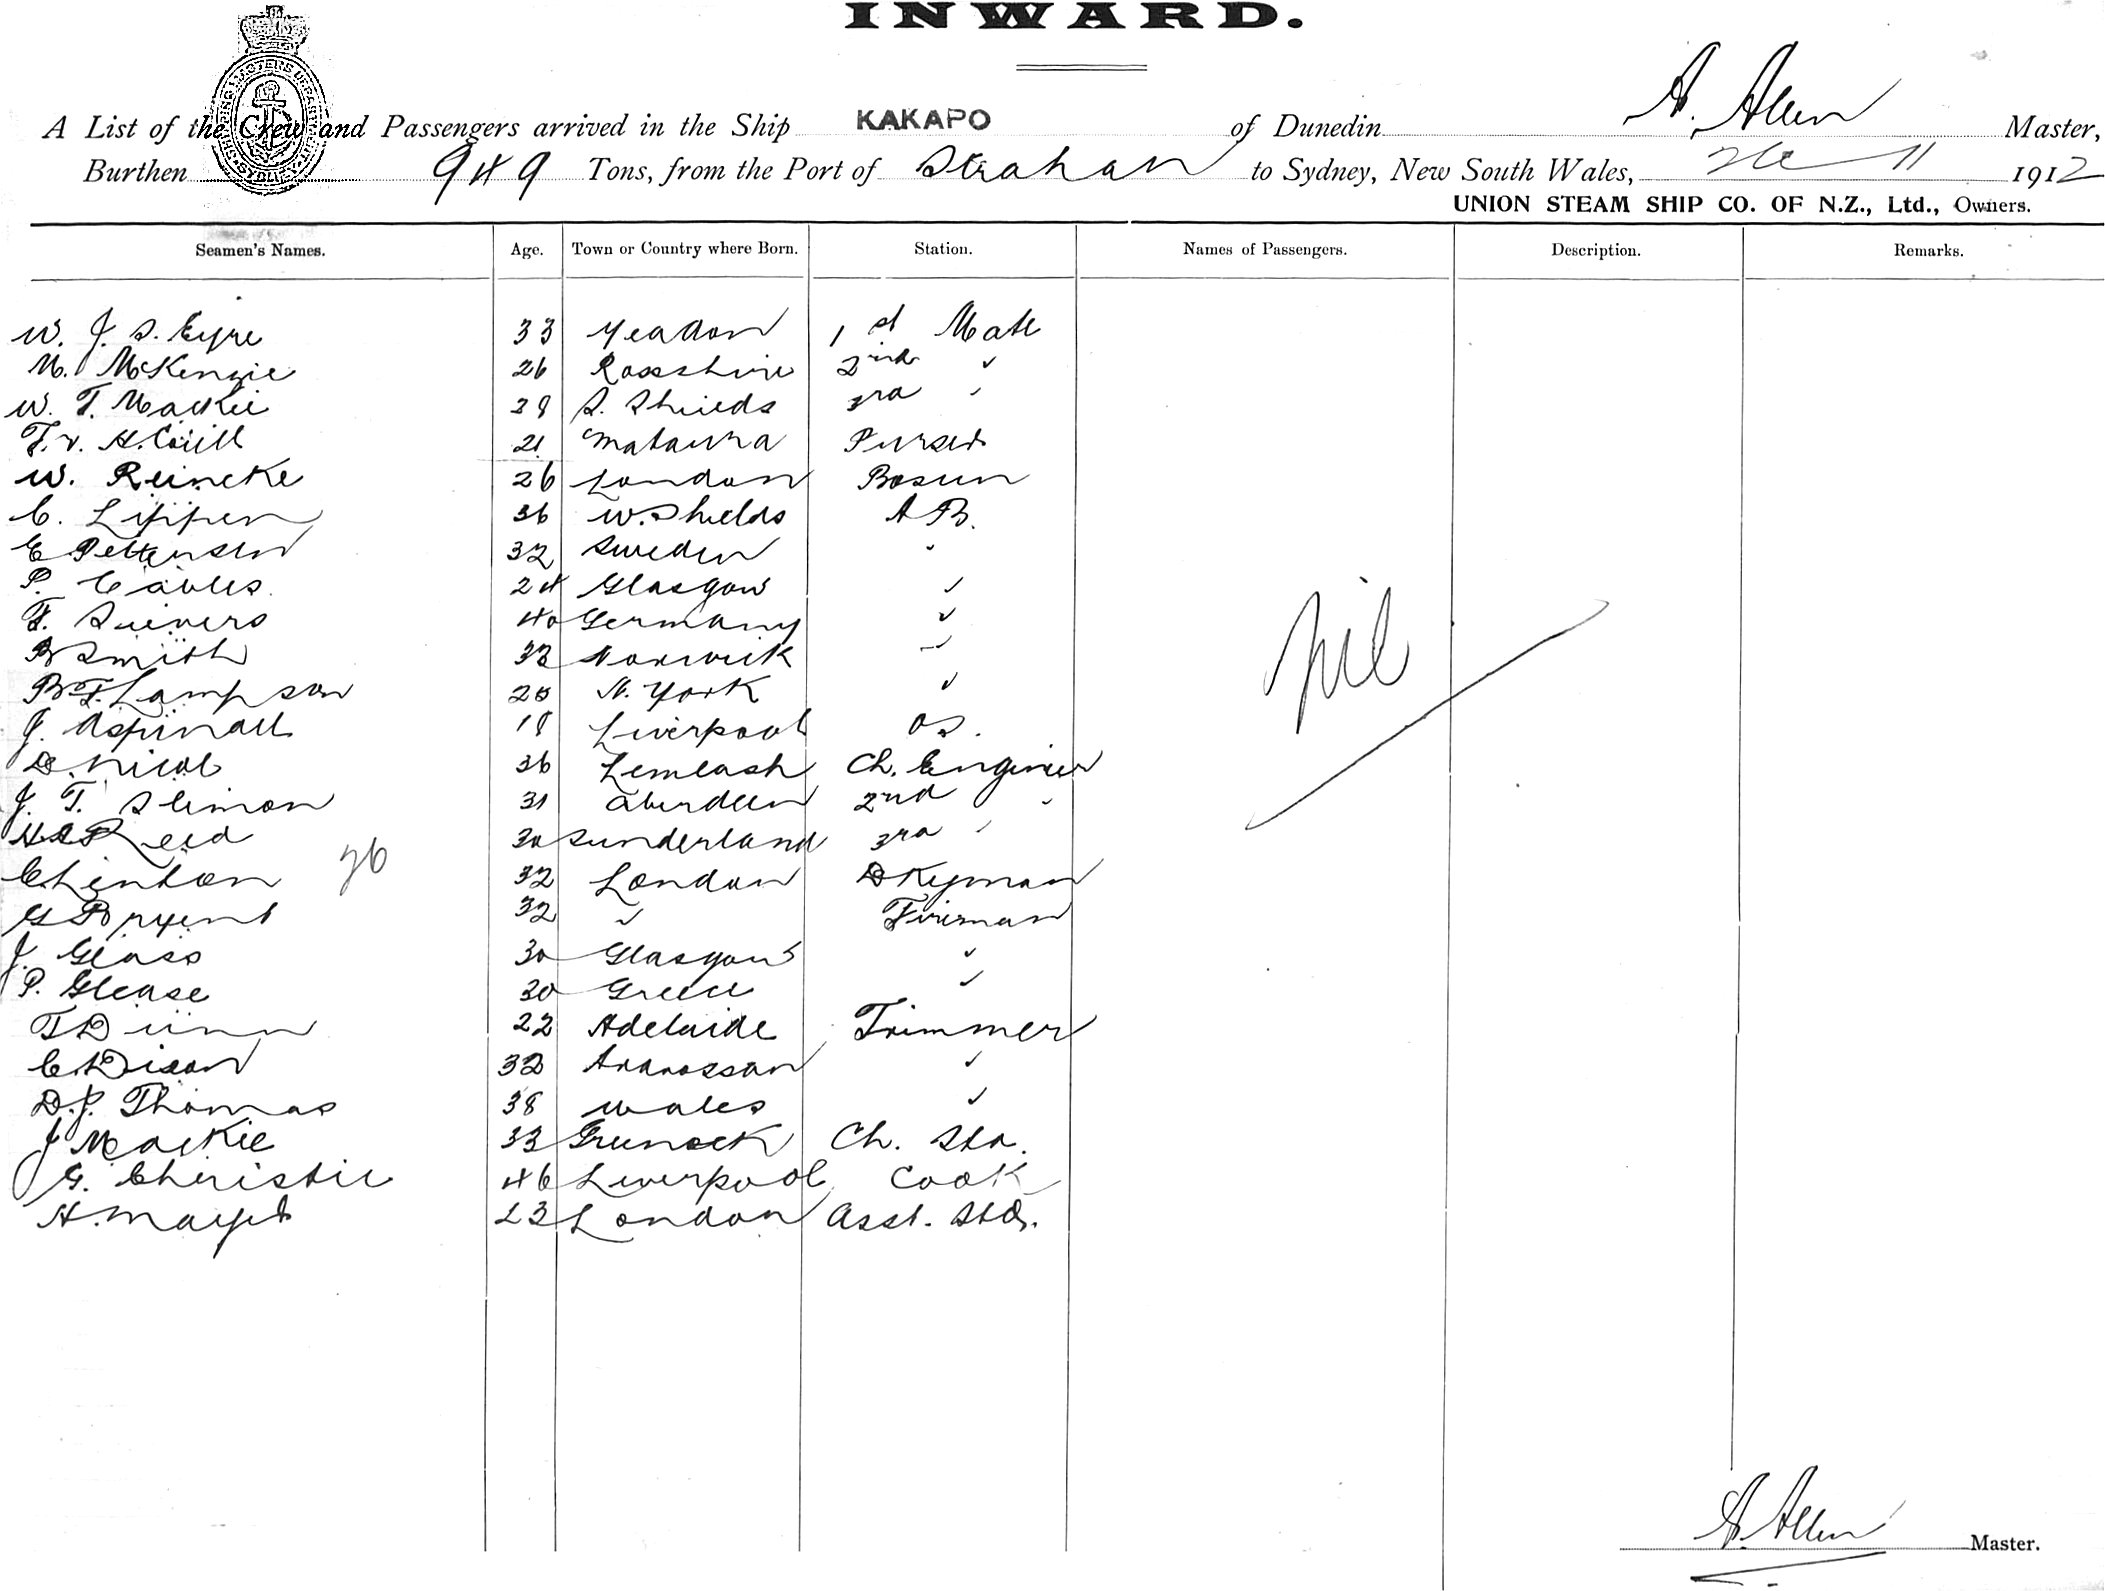 INWARD.
A List of the Crew and Passengers arrived in the Ship KAKAPO of Dunedin A. Allen Master,
Burthen 949 Tons, from the Port of Strahan to Sydney, New South Wales, 11 1912
UNION STEAM SHIP CO. OF N.Z., Ltd., Owners.
Seamen's Names. Age. Town or Country where Born. Station. Names of Passengers. Description. Remarks.
W. J. S. Eyre 33 Yeadon 1st Mate
M. McKenzie 26 Rossshire 2nd "
W. T. Mackie 28 S. Shields 3rd "
F. v. H. 21 Mataura Purser
W. Reincke 26 London Bosun
C. Lippen 36 W. Shields A B.
E Pettersen 32 Sweden "
P. Cables 24 Glasgow "
F. Sievers 40 Germany "
B Smith 33 Norwick "
B. F. Lampson 20 N. York "
nil
J. Aspinall 18 Liverpool OS.
D. Nicol 36 Lemlash Ch. Engineer
J. T. Slimon 31 Aberdeen 2nd "
Reid 30 Sunderland 3rd "
26
C Linton 32 London Dkeyman
G Bryent 32 " Fireman
J. Glass 30 Glasgow "
P. Glease 30 Greece "
T Dunn 22 Adelaide Trimmer
C Dixon 32 Ardrossan "
D. J. Thomas 38 Wales "
J Mackie 33 Greenock Ch. Std.
G. Christie 46 Liverpool Cook
H. 23 London Asst. Std.
A. Allen Master.